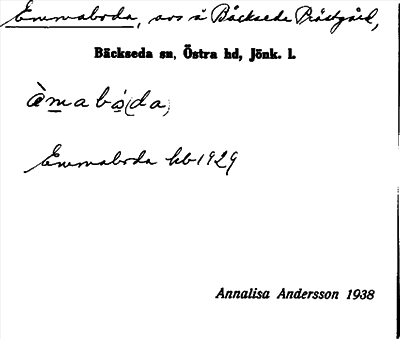 Emmaboda, avs å Bäckseda Prästgård,
Bäckseda sn, Östra hd, Jönk. l.
àmabó(da)
Emmaboda kb 1929
Annalisa Andersson 1938